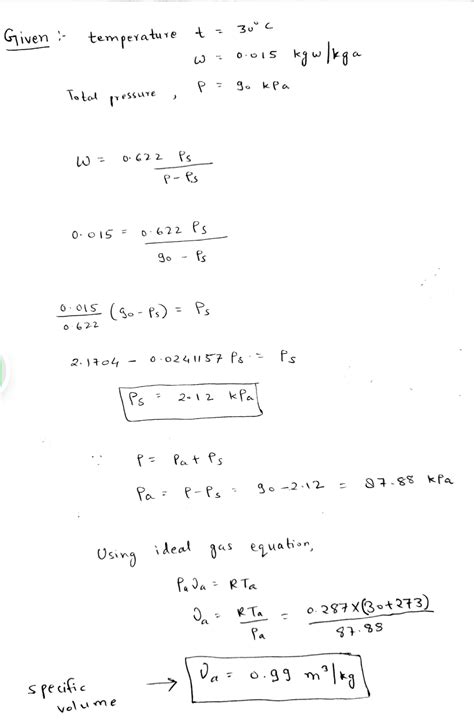 Given :- temperature t = 30°C
ω = 0.015 kgw/kga
Total pressure, P = 90 kPa
ω = 0.622 Ps / P-Ps
0.015 = 0.622 Ps / 90 - Ps
0.015 / 0.622 (90-Ps) = Ps
2.1704 - 0.0241157 Ps = Ps
Ps = 2.12 kPa
∵ P = Pa + Ps
Pa = P-Ps = 90-2.12 = 87.88 kPa
Using ideal gas equation,
Pa υa = RTa
υa = RTa / Pa = 0.287×(30+273) / 87.88
specific volume → υa = 0.99 m³/kg